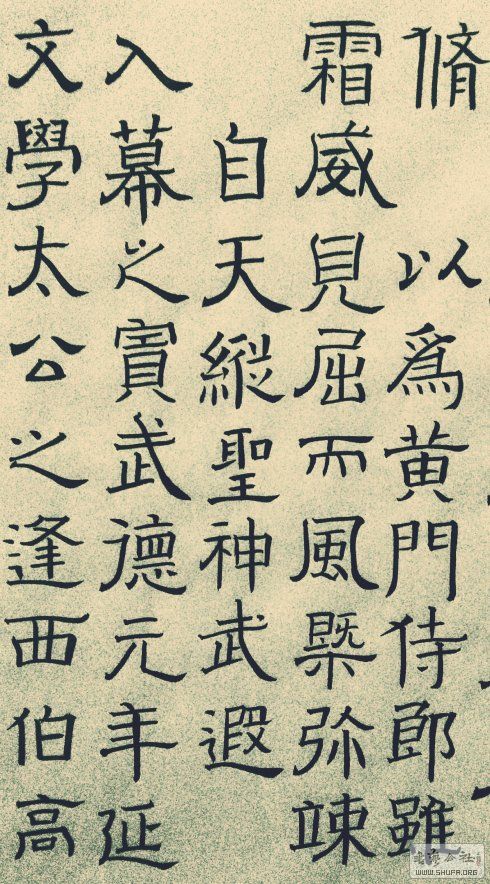 脩 以為黃門侍郎雖
霜威見屈而風槩弥竦
自天縱聖神武遐
入幕之賓武德元年延
文學太公之逢西伯高
WWW.SHUFA.ORG